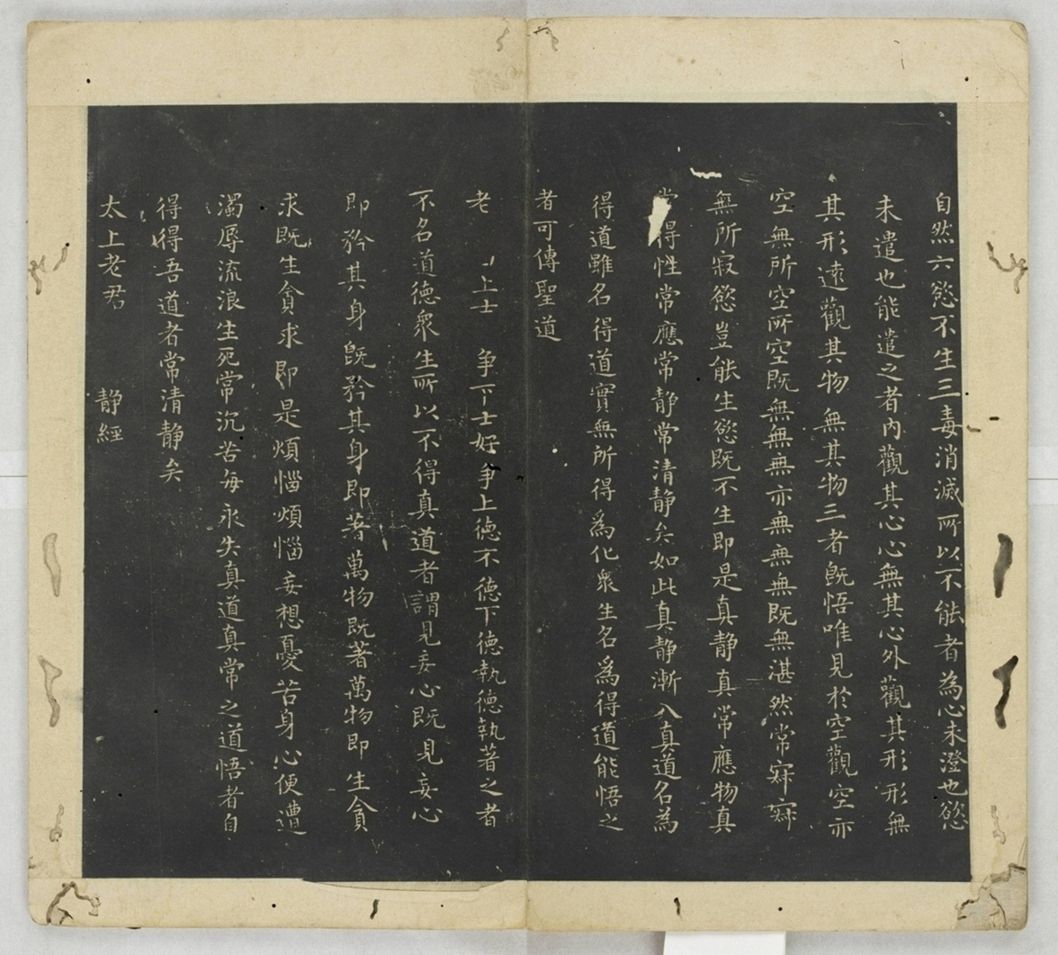 自然六慾不生三毒消滅所以不能者為心未澄也慾
未遣也能遣之者內觀其心心無其心外觀其形形無
其形遠觀其物無其物三者既悟唯見於空觀空亦
空無所空所空既無無無亦無無無既無湛然常寂寂
無所寂慾豈能生慾既不生即是真静真常應物真
常得性常應常静常清静矣如此真静漸入真道名為
得道雖名得道實無所得為化衆生名為得道能悟之
者可傳聖道
老 上士 争下士好争上德不德下德執德執著之者
不名道德衆生所以不得真道者謂見妄心既見妄心
即矜其身既矜其身即著萬物既著萬物即生貪
求既生貪求即是煩惱煩惱妄想憂苦身心便遭
濁辱流浪生死常沉苦每永失真道真常之道悟者自
得得吾道者常清静矣
太上老君 静經